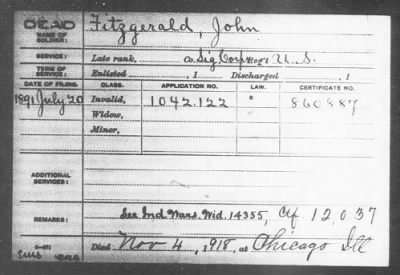 DEAD
NAME OF SOLDIER: Fitzgerald, John
SERVICE: Late rank, Co. Sig Corp Reg't U.S.
TERM OF SERVICE: Enlisted , 1 Discharged , 1
DATE OF FILING. CLASS. APPLICATION NO. LAW. CERTIFICATE NO.
1891 July 20 Invalid, 1042.122 860887
Widow,
Minor,
ADDITIONAL SERVICES:
REMARKS: See Ind. Wars. Wid. 14355, Ctf. 12,037
Died Nov 4, 1918, at Chicago Ill